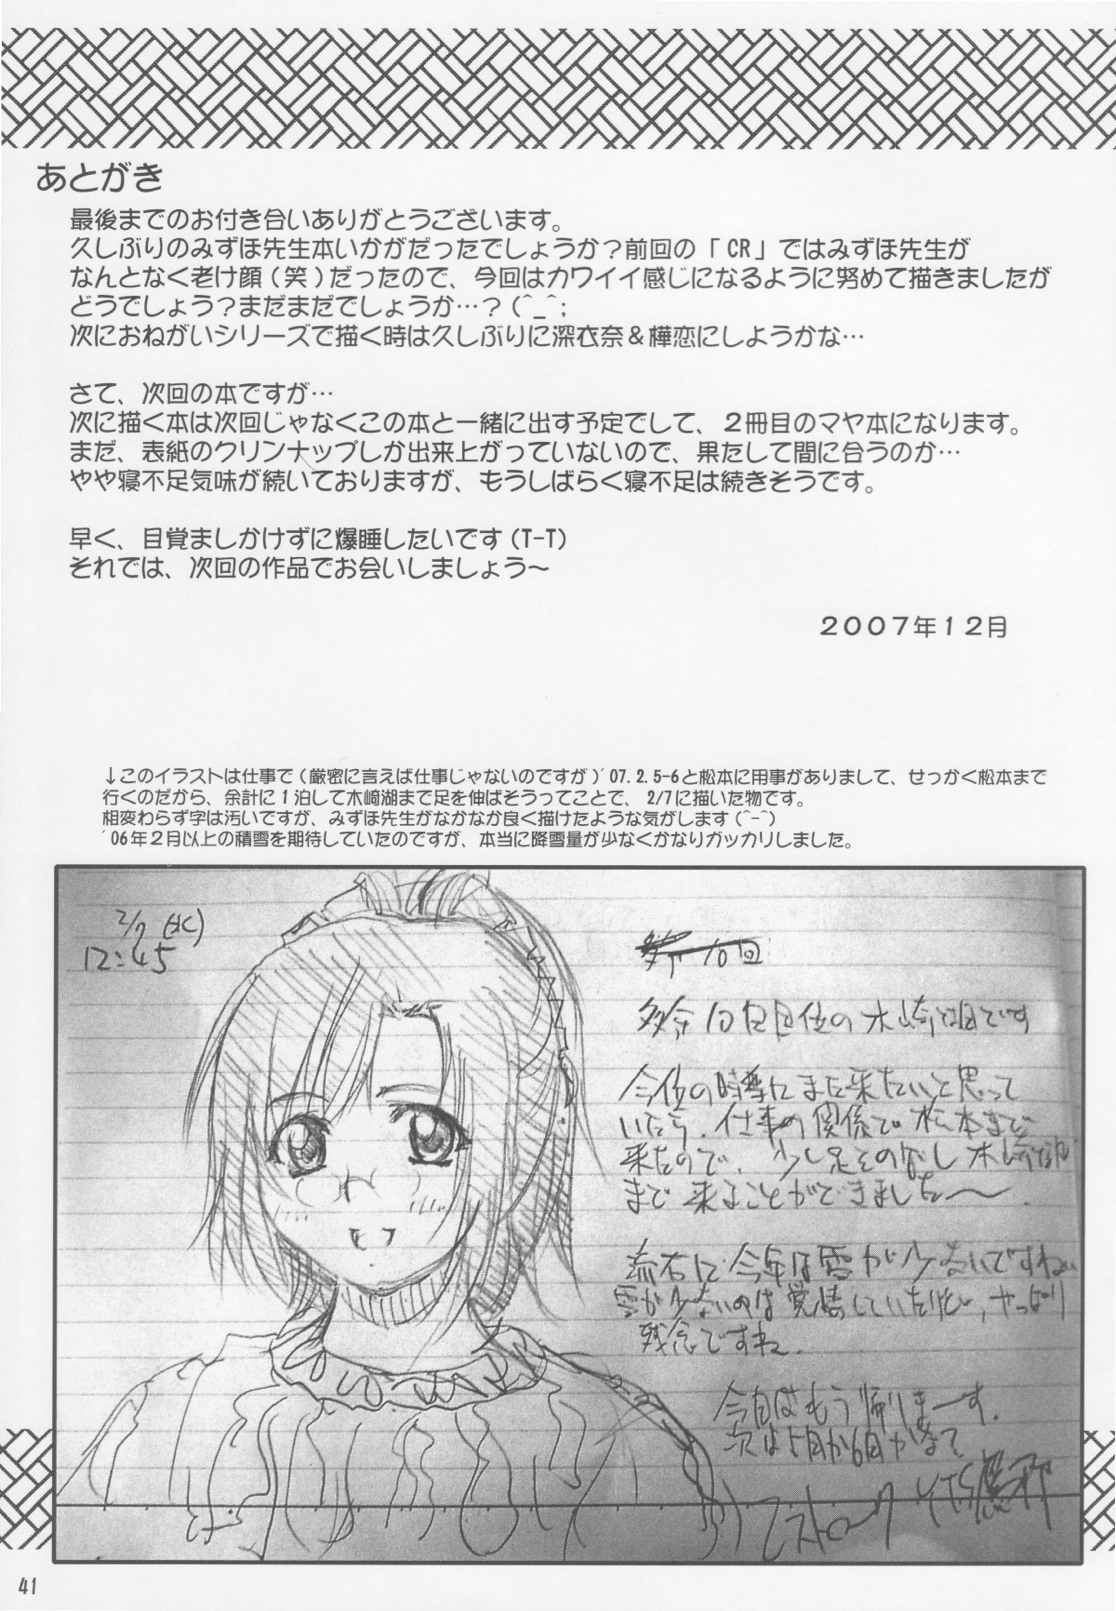 あとがき
最後までのお付き合いありがとうございます。
久しぶりのみずほ先生本いかがだったでしょうか？前回の「CR」ではみずほ先生が
なんとなく老け顔(笑)だったので、今回はカワイイ感じになるように努めて描きましたが
どうでしょう？まだまだでしょうか…？(^_^;
次におねがいシリーズで描く時は久しぶりに深衣奈＆樺恋にしようかな…
さて、次回の本ですが…
次に描く本は次回じゃなくこの本と一緒に出す予定でして、２冊目のマヤ本になります。
まだ、表紙のクリンナップしか出来上がっていないので、果たして間に合うのか…
やや寝不足気味が続いておりますが、もうしばらく寝不足は続きそうです。
早く、目覚ましかけずに爆睡したいです(T-T)
それでは、次回の作品でお会いしましょう～
２００７年１２月
↓このイラストは仕事で(厳密に言えば仕事じゃないのですが)'07.2.5-6と松本に用事がありまして、せっかく松本まで
行くのだから、余計に１泊して木崎湖まで足を伸ばそうってことで、2/7に描いた物です。
相変わらず字は汚いですが、みずほ先生がなかなか良く描けたような気がします(^-^)
'06年２月以上の積雪を期待していたのですが、本当に降雪量が少なくかなりガッカリしました。
2/7(水)
12:45
多分10回目位の木崎湖です
今位の時季にまた来たいと思って
いたら、仕事の関係で松本まで
来たので、少し足をのばし木崎湖
まで来ることができました〜.
流石に今年は雪が少ないですね
雪が少ないのは覚悟していたけど、やっぱり
残念ですね.
今日はもう帰りまーす.
次は5月か6月かなって
41